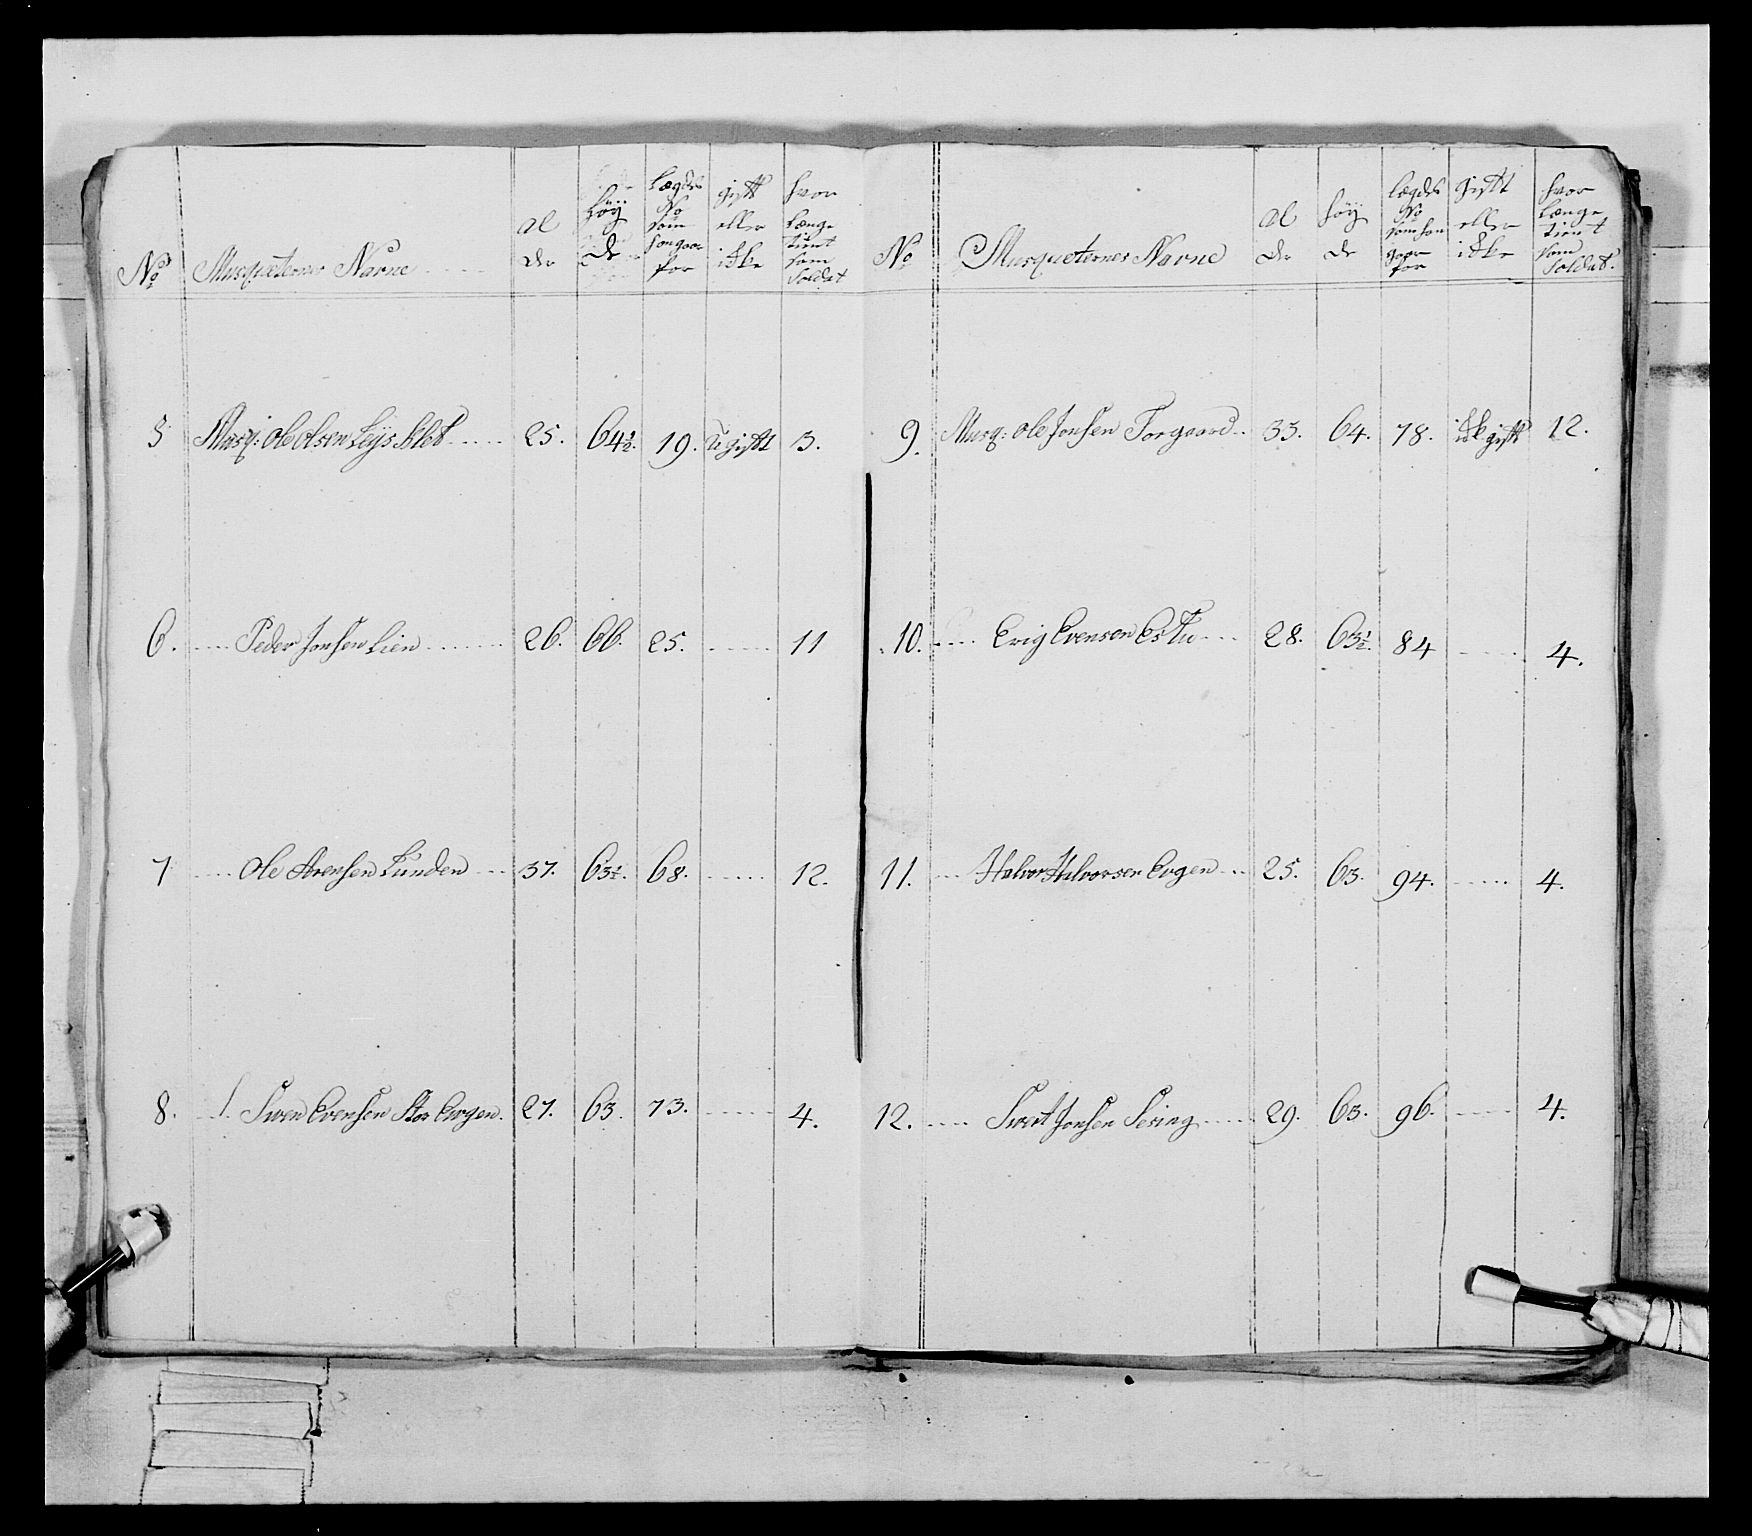 No Musqueternes Navne Al der Höy de Lægds No som han gaar for gift eller ikke hvor længe tient som Soldat
5 Musq: Ole Olsen 25. 64½. 19. Ugift 3.
6. Peder Jonsen Lien 26. 66. 25. 11
7 Ole Arensen Lunden 37. 63½. 68. 12.
8. Sven Evensen Stor Evgen. 27. 63. 73. 4.
No Musqueternes Navne Al der höy de Lægds No som han gaar for gift eller ikke hvor længe tient som Soldat.
9. Musq: Ole Jonsen Forgaard 33. 64. 78. ikke gift 12.
10. Erig Evensen 28. 63½. 84 4.
11. Halvor Halvorsen Evgen 25. 63. 94. 4.
12. Jonsen 29. 63. 96. 4.